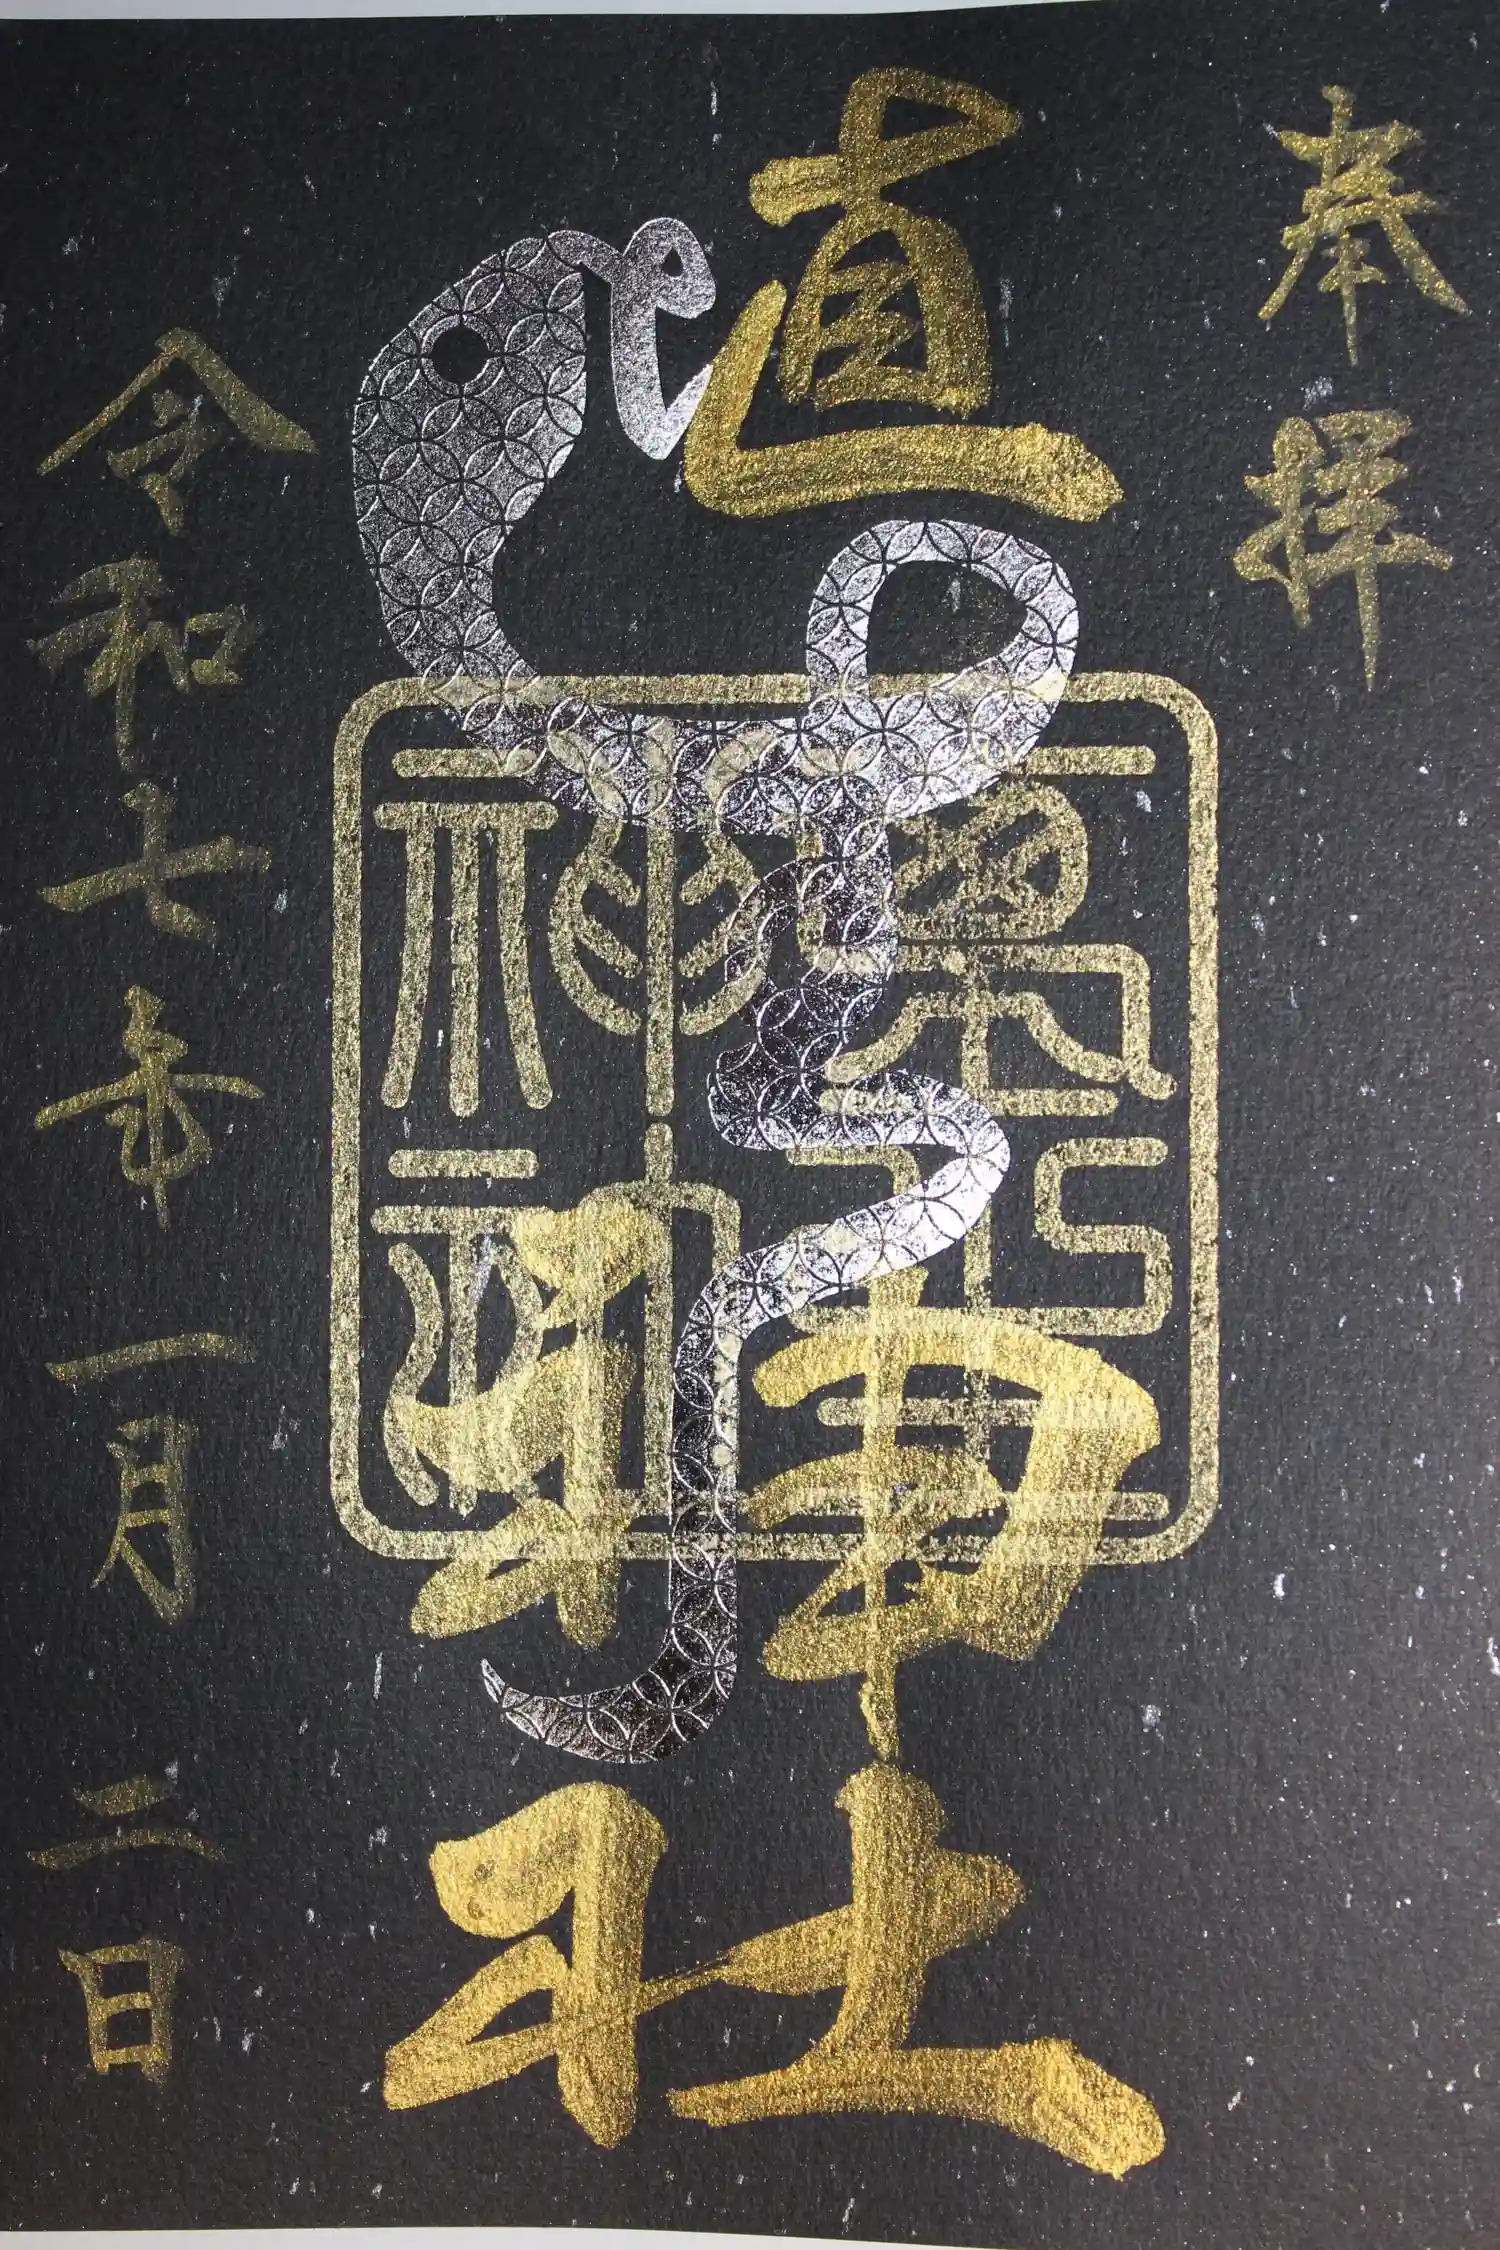 奉拝
直神社
令和七年一月二日